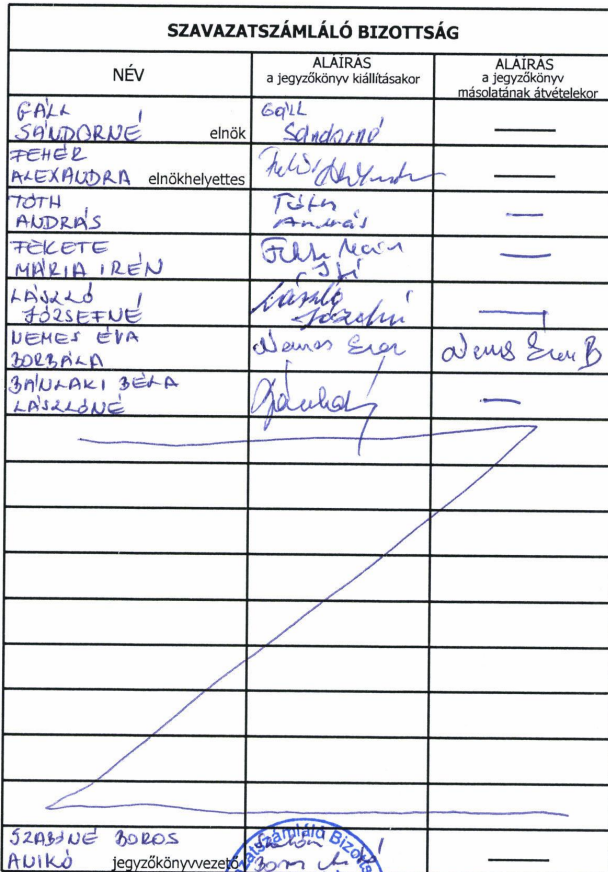 SZAVAZATSZÁMLÁLÓ BIZOTTSÁG
NÉV
ALÁÍRÁS
a jegyzőkönyv kiállításakor
ALÁÍRÁS
a jegyzőkönyv
másolatának átvételekor
GÁLL
SÁNDORNÉ elnök
Gáll
Sándorné
FEHÉR
ALEXANDRA elnökhelyettes
TÓTH
ANDRÁS
Tóth
András
FEKETE
MÁRIA IRÉN
LÁSZLÓ
JÓZSEFNÉ
László
Józsefné
NEMES ÉVA
BORBÁLA
Nemes Éva
Nemes Éva B
BÁNLAKI BÉLA
LÁSZLÓNÉ
SZABÓNÉ BOROS
ANIKÓ jegyzőkönyvvezető